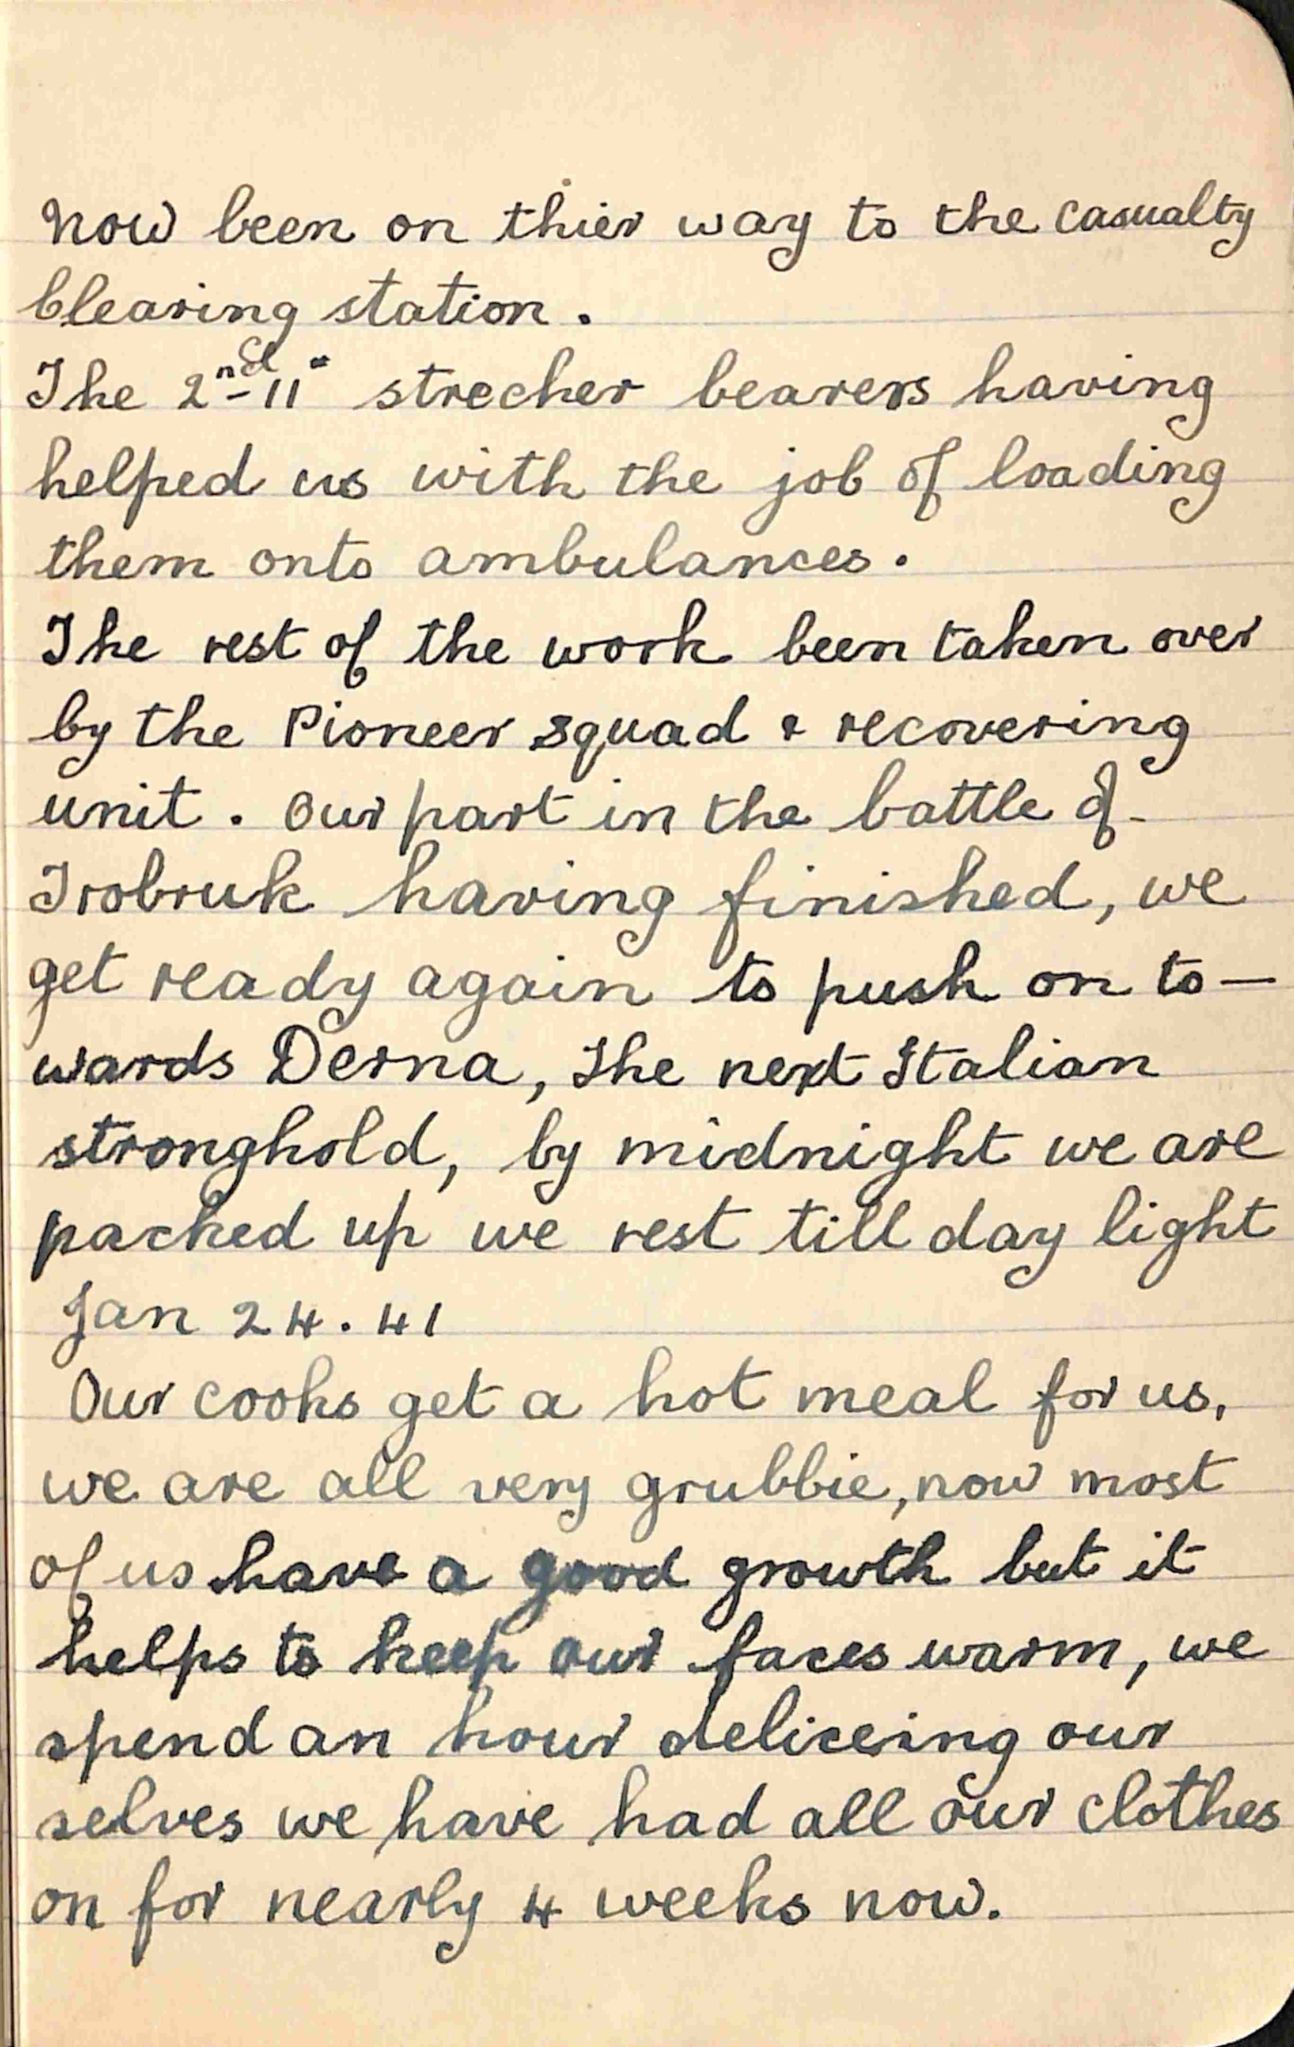 now been on thier way to the casualty
clearing station.
The 2nd-11th strecher bearers having
helped us with the job of loading
them onto ambulances.
The rest of the work been taken over
by the Pioneer squad & recovering
unit. Our part in the battle of
Trobruk having finished, we
get ready again to push on to-
wards Derna, The next Italian
stronghold, by midnight we are
packed up we rest till day light
Jan 24.41
Our cooks get a hot meal for us,
we are all very grubbie, now most
of us have a good growth but it
helps to keep our faces warm, we
spend an hour deliceing our
selves we have had all our clothes
on for nearly 4 weeks now.